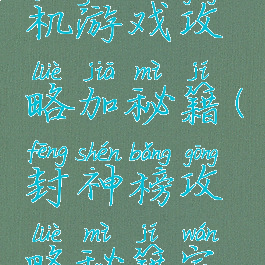 机游戏攻
lüè jiā mì jí
略加秘籍(
fēng shén bǎng gōng
封神榜攻
lüè mì jí wán
略秘籍完